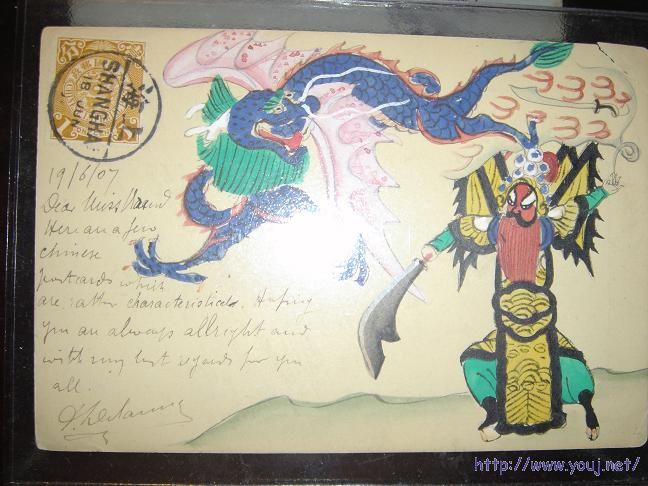 SHANGHAI
18 JUN
海上
19/6/07
Dear Miss
Here are a few
Chinese
postcards which
are rather characteristical. Hoping
you are always allright and
with my best regards for you
all.
http://www.youj.net/